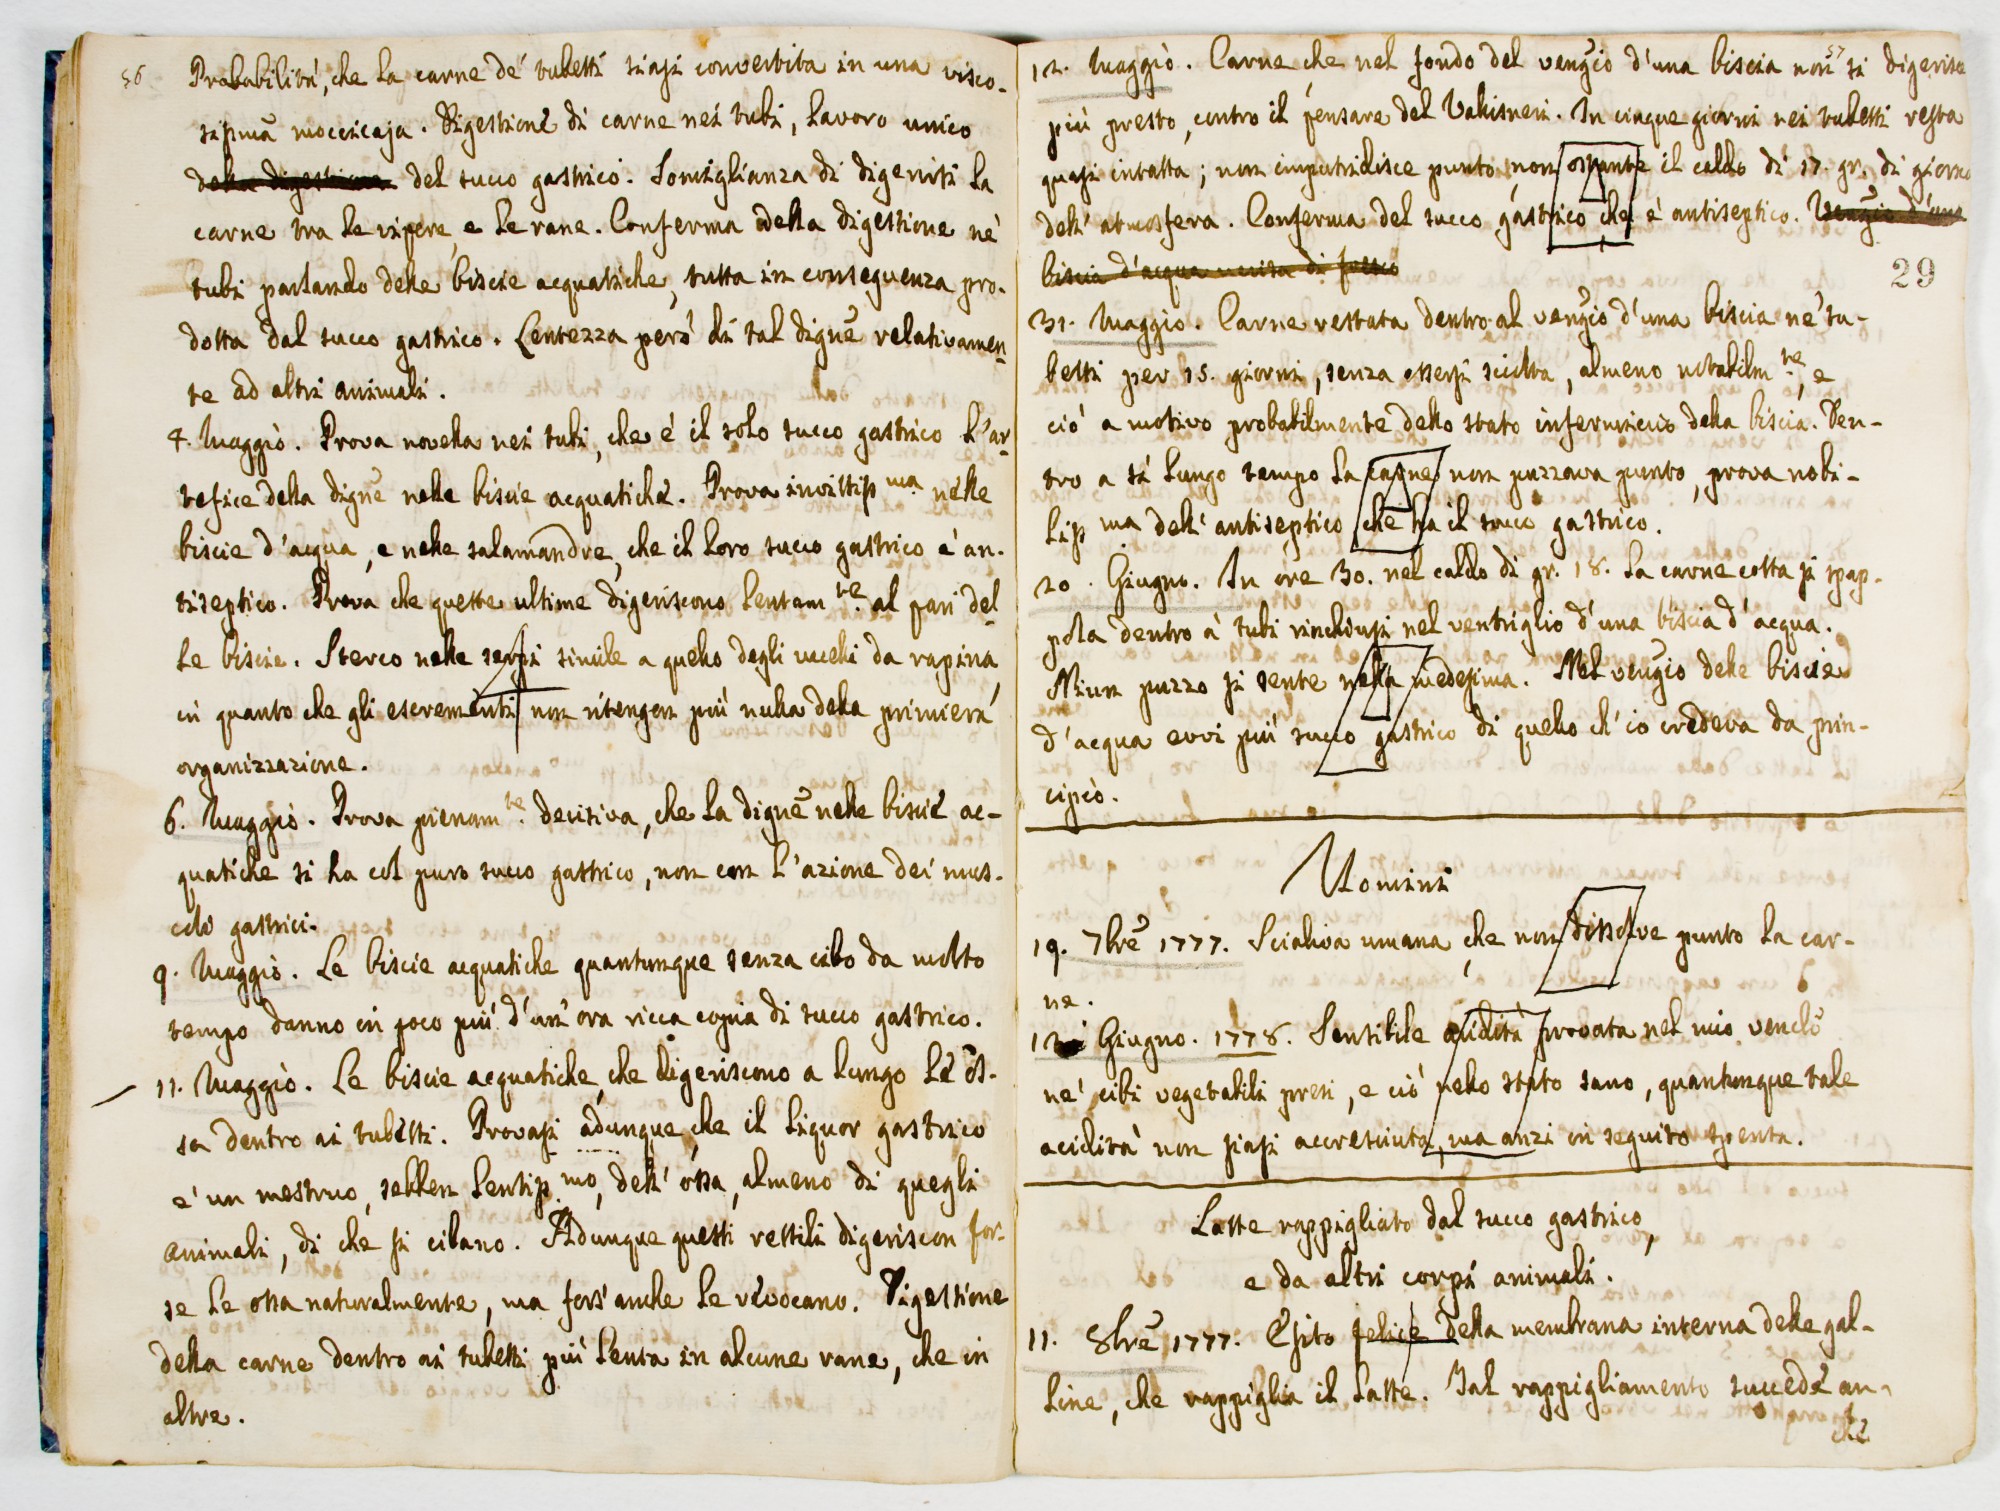 56
Probabilità, che la carne de' tubetti siasi convertita in una visco-
sissima moccicaja. Digestione di carne nei tubi, lavoro unico
della digestione del succo gastrico. Somiglianza di digerirsi la
carne tra le vipere, e le rane. Conferma della digestione ne'
tubi parlando delle biscie acquatiche, tutta in conseguenza pro-
dotta dal succo gastrico. Lentezza però di tal digne relativamen-
te ad altri animali.
4. Maggio. Prova novella nei tubi, che è il solo succo gastrico l'ar-
tefice della digne nelle biscie acquatiche. Prova invittissma nelle
biscie d'acqua, e nelle salamandre, che il loro succo gastrico è an-
tiseptico. Prova che queste ultime digeriscono lentamte. al pari del-
le biscie. Sterco nelle serpi simile a quello degli uccelli da rapina
in quanto che gli escrementi non ritengon più nulla della primiera
organizzazione.
6. Maggio. Prova pienamte. decisiva, che la digne nelle biscie ac-
quatiche si ha col puro succo gastrico, non con l'azione dei mus-
coli gastrici.
9. Maggio. Le biscie acquatiche quantunque senza cibo da molto
tempo danno in poco più d'un'ora ricca copia di succo gastrico.
11. Maggio. Le biscie acquatiche, che digeriscono a lungo le os-
sa dentro ai tubetti. Provasi adunque, che il liquor gastrico
è un mestruo, sebben lentissmo, dell'ossa, almeno di quegli
animali, di che si cibano. Adunque questi rettili digeriscon for-
se le ossa naturalmente, ma fors'anche le revocano. Digestione
della carne dentro ai tubetti più lenta in alcune rane, che in
altre.
57
12. Maggio. Carne che nel fondo del vengio d'una biscia non si digerisce
più presto, contro il pensare del Valisneri. In cinque giorni nei tubetti resta
quasi intatta; non imputridisce punto non ostante il caldo di 17. gr. di giorno
dell'atmosfera. Conferma del succo gastrico che è antiseptico. Vengio d'una
biscia d'acqua uccisa di fresco
29
31. Maggio. Carne restata dentro al vengio d'una biscia ne' tu-
betti per 15. giorni, senza essersi sciolta, almeno notabilmte, e
ciò a motivo probabilmente dello stato infermiccio della biscia. Den-
tro a sì lungo tempo la carne non puzzava punto, prova nobi-
lissma dell'antiseptico che ha il succo gastrico.
20. Giugno. In ore 30. nel caldo di gr. 18. la carne cotta si spap-
pola dentro a' tubi rinchiusi nel ventriglio d'una biscia d'acqua.
Niun puzzo si sente nella medesima. Nel vengio delle biscie
d'acqua evvi più succo gastrico di quello ch'io credeva da prin-
cipio.
Uomini
19. 7bre 1777. Scialiva umana, che non dissolve punto la car-
ne.
12 Giugno. 1778. Sensibile acidità provata nel mio venclo
ne' cibi vegetabili presi, e ciò nello stato sano, quantunque tale
acidità non siasi accresciuta, ma anzi in seguito spenta.
Latte rappigliato dal succo gastrico,
e da altri corpi animali.
11. 8bre 1777. Esito felice della membrana interna delle gal-
line, che rappiglia il latte. Tal rappigliamento succede an-
che